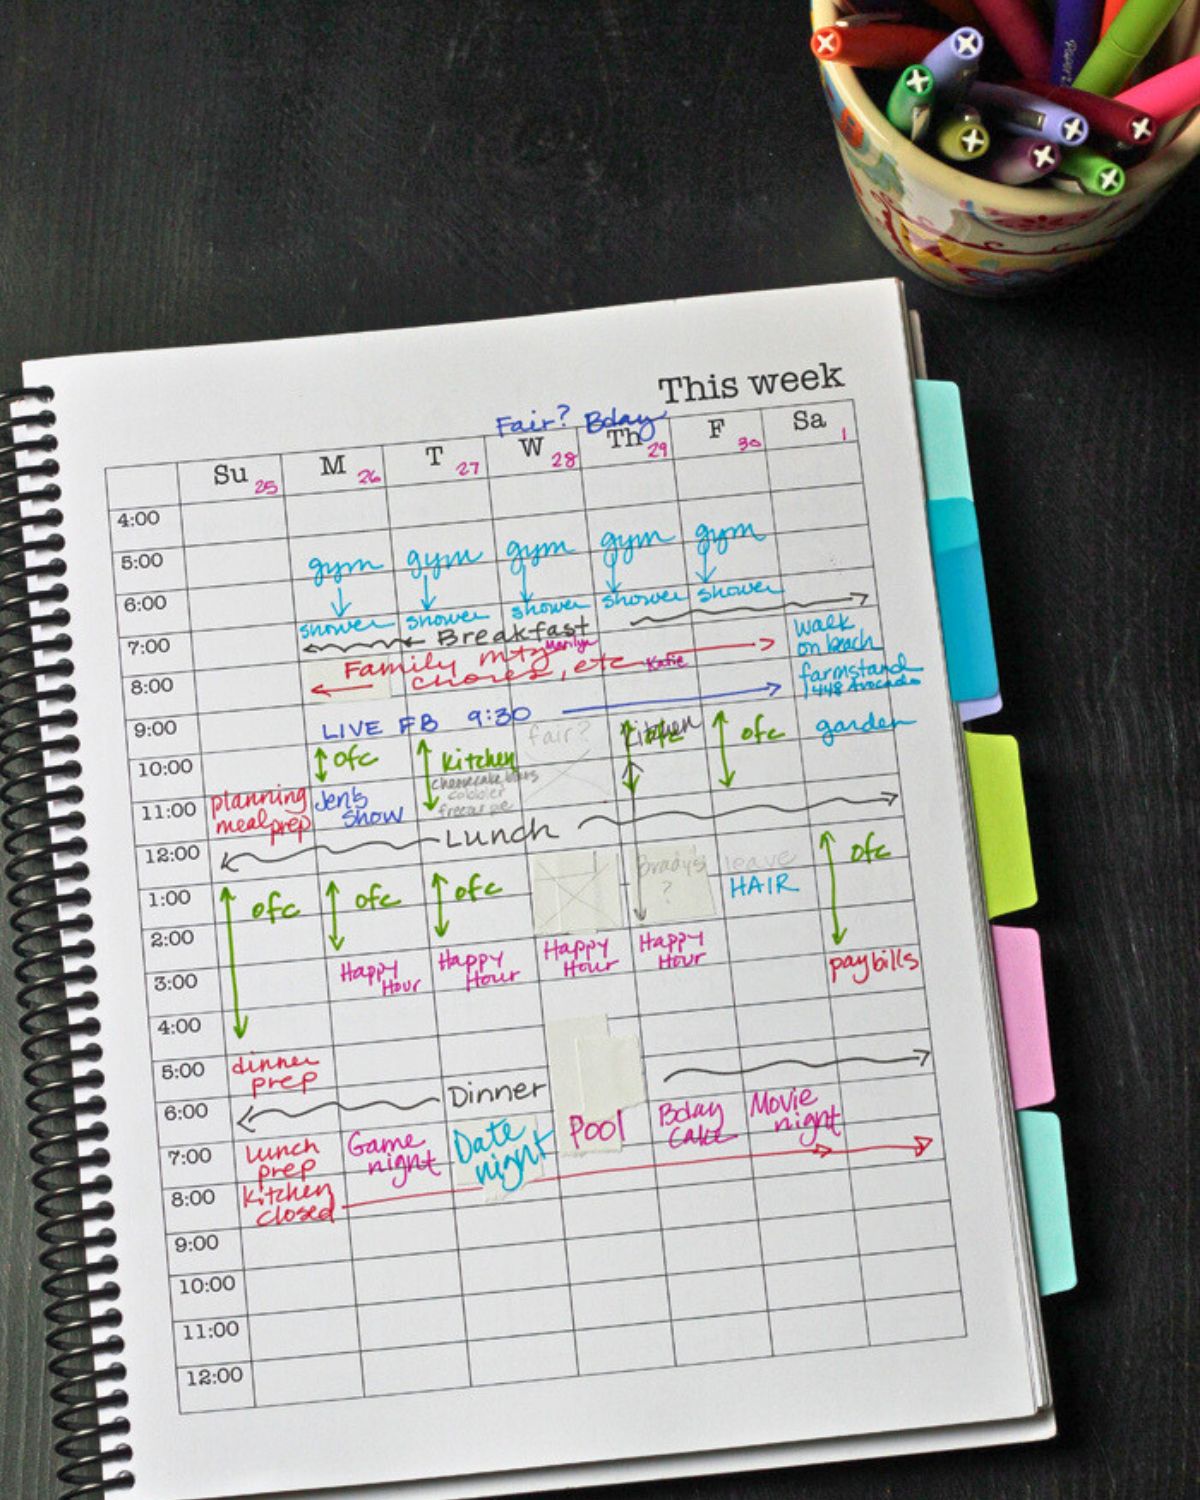 This week
Fair? Bday
Su 25 M 26 T 27 W 28 Th 29 F 30 Sa 1
4:00
5:00
gym gym gym gym gym
6:00
shower shower shower shower shower
7:00
Breakfast
walk
on beach
Family mtg Marilyn
chores, etc Katie
8:00
farmstand
1448 Avocado
9:00
LIVE FB 9:30
fair?
kitchen
ofc
ofc
garden
10:00
ofc
kitchen
cheesecake bars
cobbler
11:00
planning
meal prep
Jen's
Show
12:00
Lunch
ofc
1:00
ofc
ofc
ofc
Brady's
?
leave
HAIR
2:00
Happy
Hour
Happy
Hour
Happy
Hour
Happy
Hour
3:00
pay bills
4:00
5:00
dinner
prep
6:00
Dinner
7:00
lunch
prep
Game
night
Date
night
Pool
Bday
Cake
Movie
night
8:00
Kitchen
closed
9:00
10:00
11:00
12:00